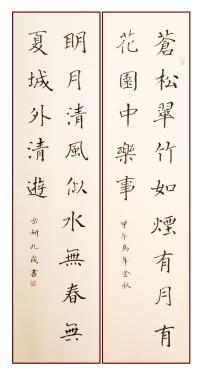 蒼松翠竹如煙有月有
花園中樂事
甲午馬年金秋
明月清風似水無春無
夏城外清遊
九歲書